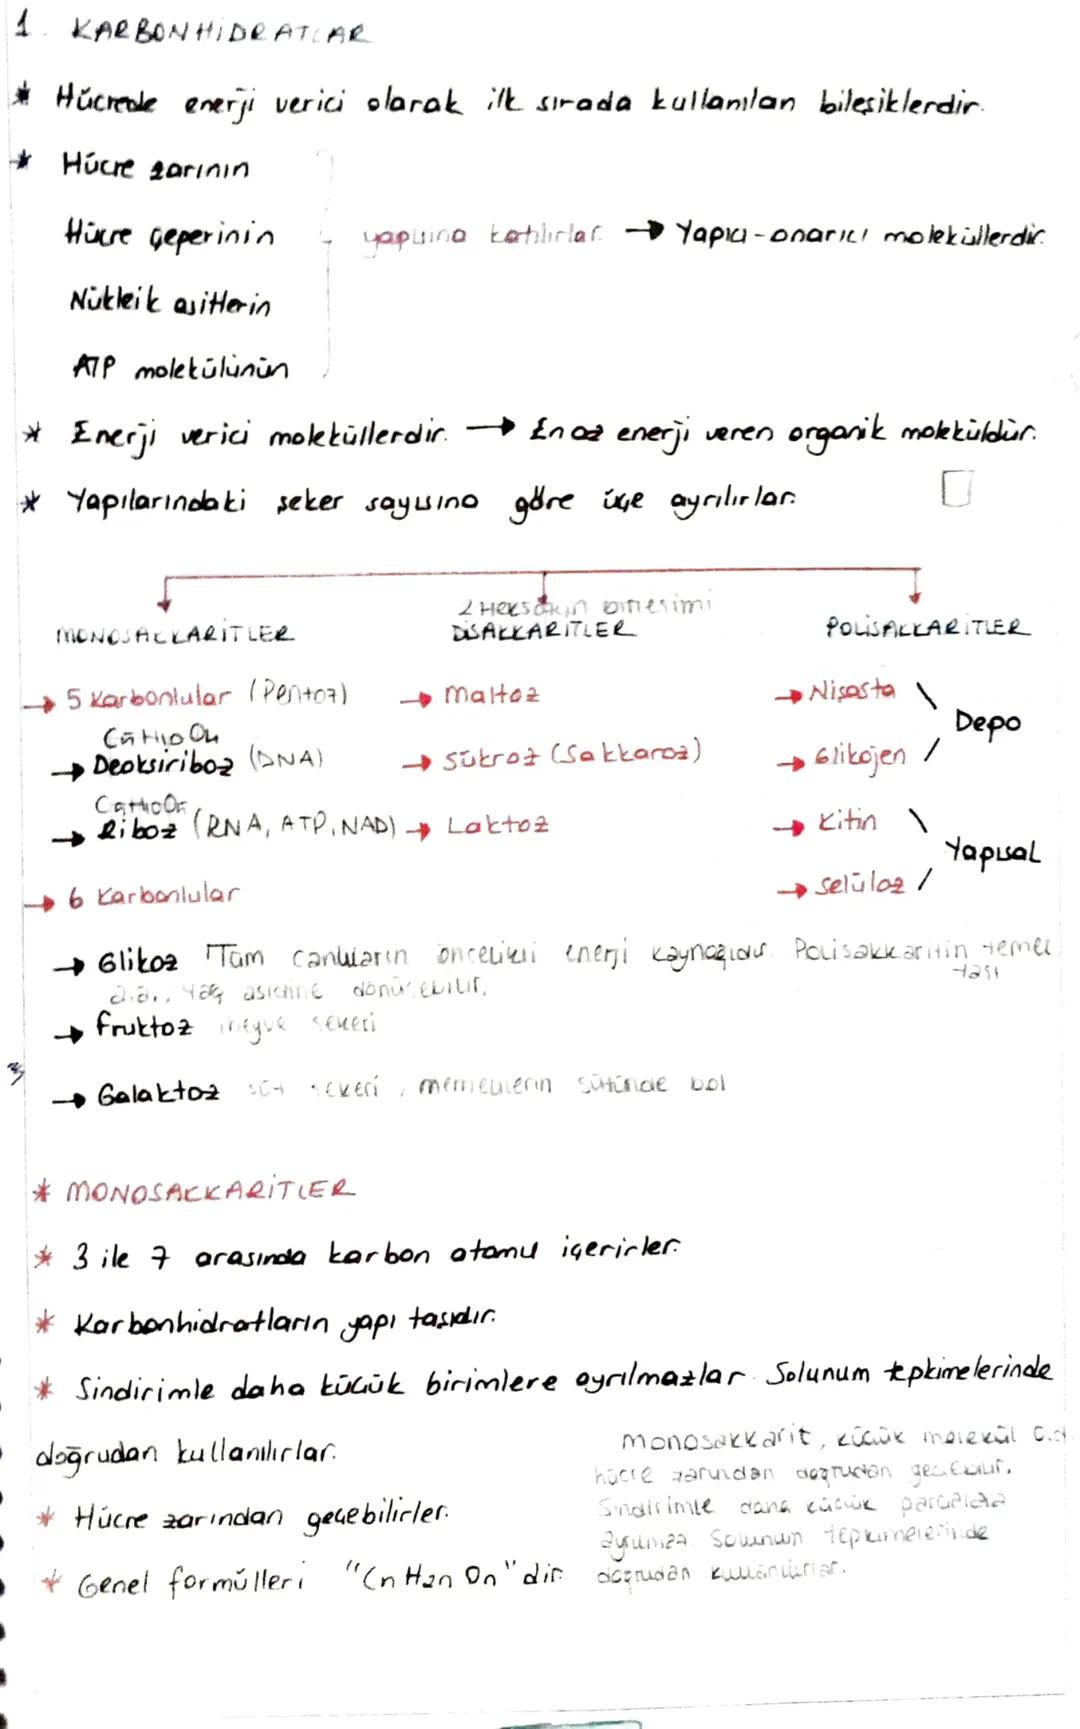 1. KARBONHİDRATLAR
* Hücrede enerji verici olarak ilk sırada kullanılan bileşiklerdir.
* Hücre zarının
Hücre çeperinin yapısına katılırlar. → Yapıcı-onarıcı moleküllerdir.
Nükleik asitlerin
ATP molekülünün
* Enerji verici moleküllerdir. → En az enerji veren organik moleküldür.
* Yapılarındaki şeker sayısına göre üçe ayrılırlar.
2 Heksozun birleşimi
MONOSAKKARİTLER DİSAKKARİTLER POLİSAKKARİTLER
→ 5 Karbonlular (Pentoz) → Maltoz → Nişasta
Depo
→ Deoksiriboz (DNA) → Sükroz (Sakkaroz) → Glikojen
→ Riboz (RNA, ATP, NAD) → Laktoz → Kitin
Yapısal
→ 6 Karbonlular → Selüloz
→ Glikoz Tüm canlıların öncelikli enerji kaynağıdır. Polisakkaritin temel
taşı
a.a., yağ asidine dönüşebilir.
→ Fruktoz meyve şekeri
→ Galaktoz süt şekeri, memelilerin sütünde bol
* MONOSAKKARİTLER
* 3 ile 7 arasında karbon atomu içerirler.
* Karbonhidratların yapı taşıdır.
* Sindirimle daha küçük birimlere ayrılmazlar. Solunum tepkimelerinde
doğrudan kullanılırlar.
* Hücre zarından geçebilirler.
* Genel formülleri "CnH2nOn" dir.
monosakkarit, küçük molekül
hücre zarından doğrudan geçebilir.
Sindirimle daha küçük parçalara
ayrılmaz. Solunum tepkimelerinde
doğrudan kullanılırlar.